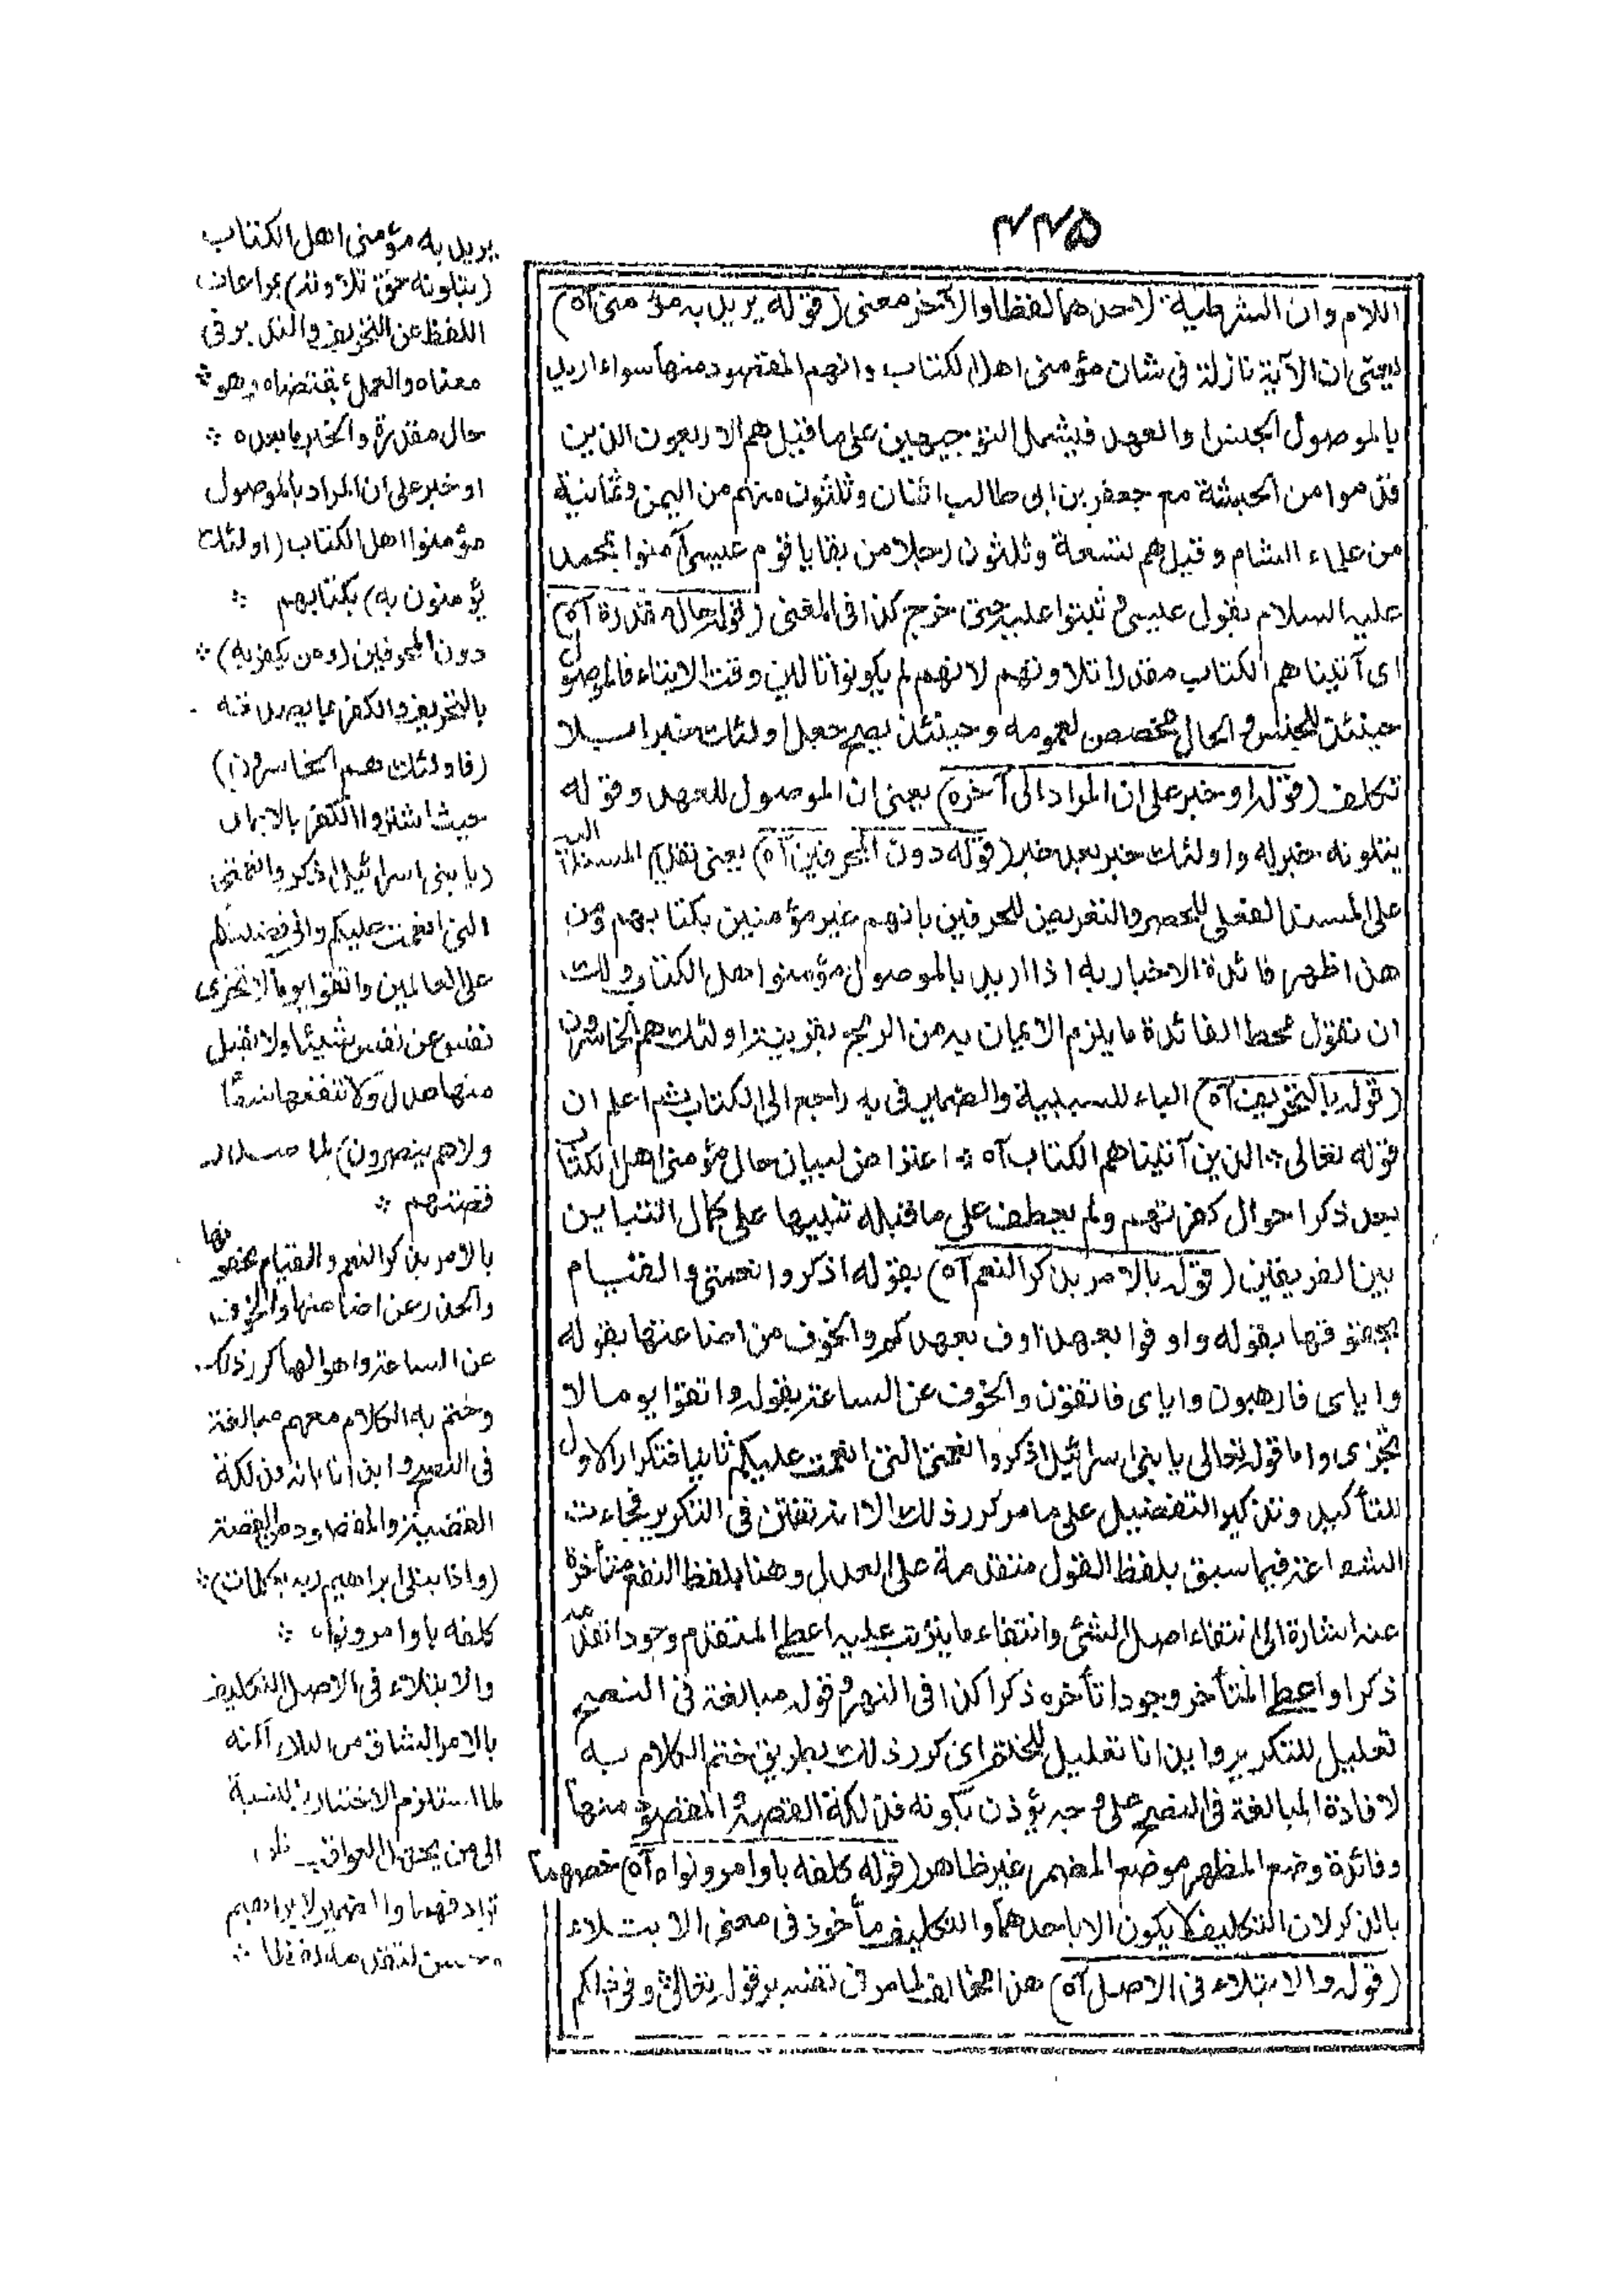 ٤٤٥
اللام وان الشرطية لاحدهما لفظا والآخر معنى (قوله يريد به مؤمنى آه)
يعنى ان الآية نازلة فى شان مؤمنى اهل الكتاب وانهم المقصود منها سواء اريد
بالموصول الجنس او العهد فيشمل التوجيهين على ما قيل هم الاربعون الذين
قدموا من الحبشة مع جعفر بن ابى طالب اثنان وثلثون منهم من اليمن وثمانية
من علماء الشام وقيل هم تسعة وثلثون رجلا من بقايا قوم عيسى آمنوا بمحمد
عليه السلام بقول عيسى ثبتوا عليه حتى خرج كذا فى المغنى (قوله حال مقدرة آه)
اى آتيناهم الكتاب مقدرا تلاوتهم لانهم لم يكونوا تالين وقت الايتاء فالموصول
حينئذ للجنس والحال مخصص لعمومه وحينئذ يصح جعل اولئك خبرا بلا
تكلف (قوله او خبر على ان المراد الى آخره) يعنى ان الموصول للعهد وقوله
يتلونه خبر له واولئك خبر بعد خبر (قوله دون المحرفين آه) يعنى تقديم المسند اليه
على المسند الفعلى للحصر والتعريض للمحرفين بانهم غير مؤمنين بكتابهم ومن
هذا ظهر فائدة الاخبار به اذا اريد بالموصول مؤمنوا اهل الكتاب ولك
ان تقول محط الفائدة ما يلزم الايمان به من الربح بقرينة اولئك هم الخاسرون
(قوله بالتحريف آه) الباء للسببية والضمير فى به راجع الى الكتاب ثم اعلم ان
قوله تعالى الذين آتيناهم الكتاب آه اعتراض لبيان حال مؤمنى اهل الكتاب
بعد ذكر احوال كفرتهم ولم يعطف على ما قبله تنبيها على كمال التباين
بين الفريقين (قوله بالامر بذكر النعم آه) بقوله اذكروا نعمتى والقيام
بحقوقها بقوله واوفوا بعهدى اوف بعهدكم والخوف من اضاعتها بقوله
واياى فارهبون واياى فاتقون والخوف عن الساعة بقوله واتقوا يوما لا
تجزى واما قوله تعالى يا بنى اسرائيل اذكروا نعمتى التى انعمت عليكم ثانيا فتكرار الاول
للتأكيد وتذكير التفضيل على ما مر كرر ذلك الا انه تفنن فى التكرير فجاءت
الشفاعة فيما سبق بلفظ القبول متقدمة على العدل وهنا بلفظ النفع متأخرة
عنه اشارة الى انتفاء اصل الشئ وانتفاء ما يترتب عليه اعطى المتقدم وجودا تقدمه
ذكرا واعطى المتأخر وجودا تأخره ذكرا كذا فى النهر وقوله مبالغة فى النصح
تعليل للتكرير وايذانا تعليل للختم اى كرر ذلك بطريق ختم الكلام به
لافادة المبالغة فى النصح على وجه يؤذن بكونه فذلكة القصة والمقصود منها
وفائدة وضع المظهر موضع المضمر غير ظاهر (قوله كلفه باوامر ونواه آه) خصهما
بالذكر لان التكليف لا يكون الا باحدهما والتكليف مأخوذ فى معنى الابتلاء
(قوله والابتلاء فى الاصل آه) هذا مخالف لما مر فى تفسير قوله تعالى وفى ذلكم
يريد به مؤمنى اهل الكتاب
(يتلونه حق تلاوته) بمراعات
اللفظ عن التحريف والتدبر فى
معناه والعمل بمقتضاه وهو
حال مقدرة والخبر ما بعده
او خبر على ان المراد بالموصول
مؤمنوا اهل الكتاب (اولئك
يؤمنون به) بكتابهم
دون المحرفين (ومن يكفر به)
بالتحريف والكفر بما يصدقه
(فاولئك هم الخاسرون)
حيث اشتروا الكفر بالايمان
(يا بنى اسرائيل اذكروا نعمتى
التى انعمت عليكم وانى فضلتكم
على العالمين واتقوا يوما لا تجزى
نفس عن نفس شيئا ولا يقبل
منها عدل ولا تنفعها شفاعة
ولا هم ينصرون) لما صدر
قصتهم
بالامر بذكر النعم والقيام بحقوقها
والحذر عن اضاعتها والخوف
عن الساعة واهوالها كرر ذلك
وختم به الكلام معهم مبالغة
فى النصح وايذانا بانه فذلكة
القضية والمقصود من القصة
(واذ ابتلى ابراهيم ربه بكلمات)
كلفه باوامر ونواه
والابتلاء فى الاصل التكليف
بالامر الشاق من البلاء لكنه
لما استلزم الاختبار بالنسبة
الى من يجهل العواقب ظن
ترادفهما والضمير لابراهيم
وحسن لتقدمه لفظا